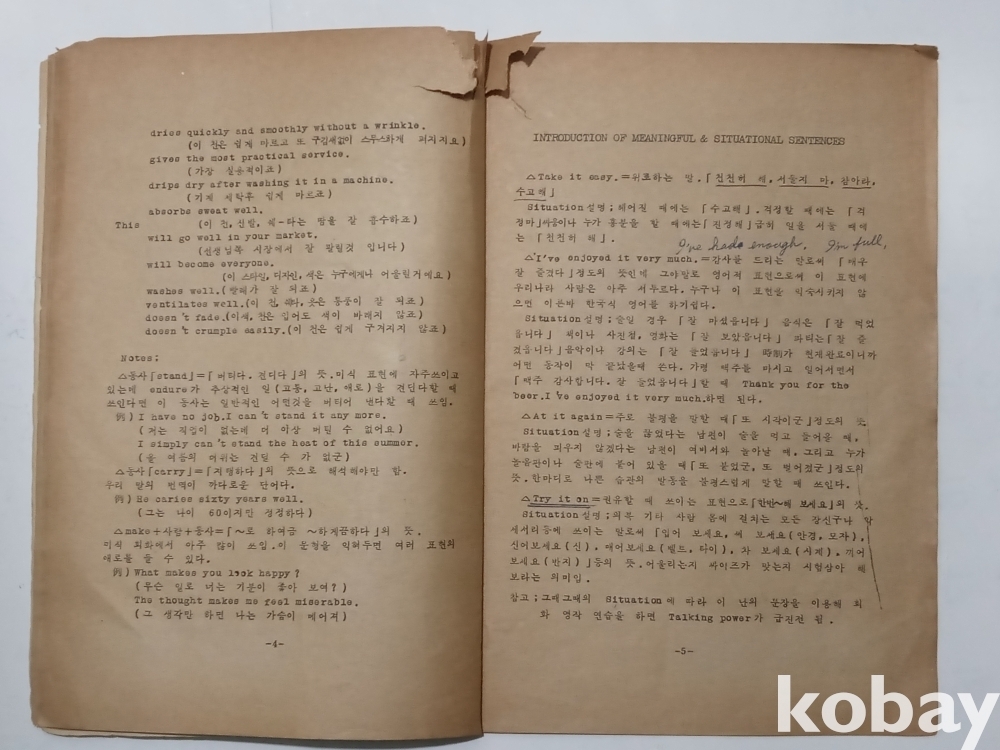 dries quickly and smoothly without a wrinkle.
(이 천은 쉽게 마르고 또 구김새없이 스무스하게 펴지지요)
gives the most practical service.
(가장 실용적이죠)
drips dry after washing it in a machine.
(기계 세탁후 쉽게 마르죠)
absorbs sweat well.
This (이 천, 신발, 쉐-타는 땀을 잘 흡수하죠)
will go well in your market.
(선생님쪽 시장에서 잘 팔릴것 입니다)
will become everyone.
(이 스타일, 디자인, 색은 누구에게나 어울릴거예요)
washes well.(빨래가 잘 되죠)
ventilates well.(이 천, 옷은 통풍이 잘 되죠)
doesn't fade.(이색, 천은 입어도 색이 바래지 않죠)
doesn't crumple easily.(이 천은 쉽게 구겨지지 않죠)
Notes;
△동사「stand」=「버티다. 견디다」의 뜻. 미식 표현에 자주쓰이고
있는데 endure가 추상적인 일(고통, 고난, 애로)을 견딘다할 때
쓰인다면 이 동사는 일반적인 어떤것을 버티어 낸다할 때 쓰임.
例) I have no job.I can't stand it any more.
(저는 직업이 없는데 더 이상 버틸 수 없어요)
I simply can't stand the heat of this summer.
(올 여름의 더위는 견딜 수 가 없군)
△동사「carry」=「지탱하다」의 뜻으로 해석해야만 함.
우리 말의 번역이 까다로운 단어다.
例) He caries sixty years well.
(그는 나이 60이지만 정정하다)
△make+사람+동사=「~로 하여금 ~하게끔하다」의 뜻.
미식 회화에서 아주 많이 쓰임.이 문형을 익혀두면 여러 표현의
애로를 풀 수 있다.
例) What makes you look happy?
(무슨 일로 너는 기분이 좋아 보여?)
The thought makes me feel miserable.
(그 생각만 하면 나는 가슴이 메어져)
-4-
INTRODUCTION OF MEANINGFUL & SITUATIONAL SENTENCES
△Take it easy.=위로하는 말.「천천히 해, 서둘지 마, 참아라,
수고해」
Situation설명;헤어질 때에는「수고해」. 걱정할 때에는「걱
정마」싸움이나 누가 흥분을 할 때에는「진정해」급히 일을 서둘 때에
는「천천히 해」.
I've had enough. I'm full,
△I've enjoyed it very much.=감사를 드리는 말로써「매우
잘 즐겼다」정도의 뜻인데 그야말로 영어적 표현으로써 이 표현에
우리나라 사람은 아주 서두르다. 누구나 이 표현을 익숙시키지 않
으면 이른바 한국식 영어를 하기쉽다.
Situation설명;술일 경우「잘 마셨읍니다」음식은「잘 먹었
읍니다」책이나 사진첩, 영화는「잘 보았읍니다」파티는「잘 즐
겼읍니다」음악이나 강의는「잘 들었읍니다」時制가 현재완료이니까
어떤 동작이 막 끝났을때 쓴다. 가령 맥주를 마시고 일어서면서
「맥주 감사합니다. 잘 들었읍니다」할 때 Thank you for the
beer.I've enjoyed it very much.하면 된다.
△At it again=주로 불평을 말할 때「또 시작이군」정도의 뜻
Situation설명;술을 끊었다는 남편이 술을 먹고 들어올 때,
바람을 피우지 않겠다는 남편이 여비서와 놀아날 때, 그리고 누가
노름판이나 술판에 붙어 있을 때「또 붙었군, 또 벌어졌군」정도의
뜻. 한마디로 나쁜 습관의 발동을 불평스럽게 말할 때 쓰인다.
△Try it on=권유할 때 쓰이는 표현으로「한번~해 보세요」의 뜻.
Situation설명;의복 기타 사람 몸에 걸치는 모든 장신구나 악
세서리등에 쓰이는 말로써「입어 보세요, 써 보세요(안경, 모자),
신어보세요(신), 매어보세요(벨트, 타이), 차 보세요(시계), 끼어
보세요(반지)」등의 뜻. 어울리는지 싸이즈가 맞는지 시험삼아 해
보라는 의미임.
참고;그때그때의 Situation에 따라 이 난의 문장을 이용해 회
화 영작 연습을 하면 Talking power가 급진전 됨.
-5-
kobay